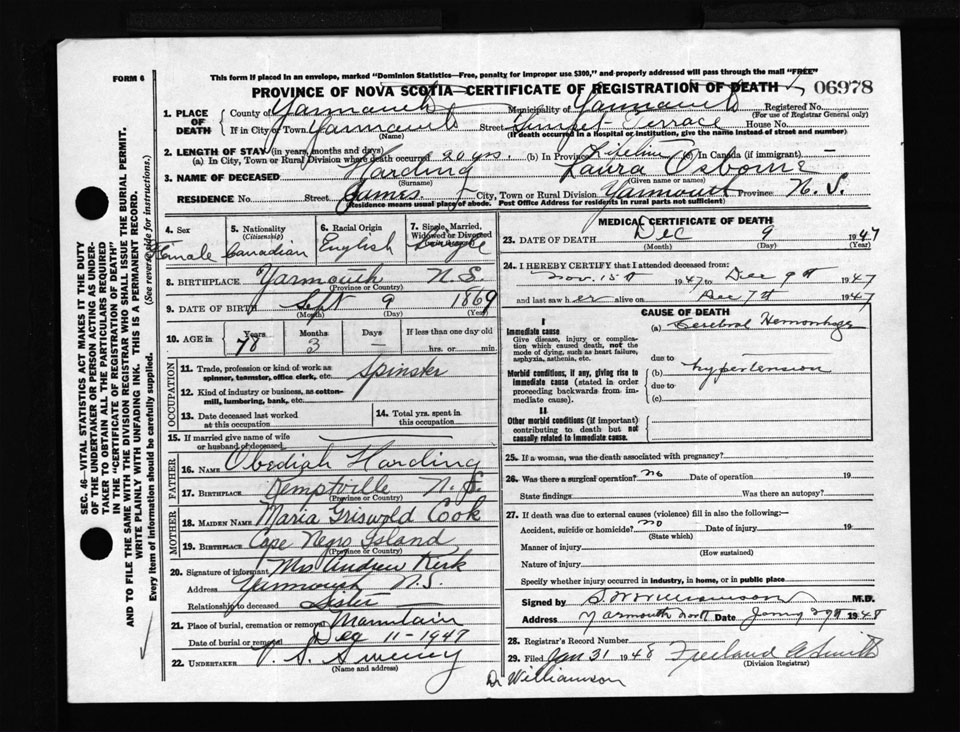 FORM 6
This form if placed in an envelope, marked "Dominion Statistics—Free, penalty for improper use $300," and properly addressed will pass through the mail "FREE"
PROVINCE OF NOVA SCOTIA—CERTIFICATE OF REGISTRATION OF DEATH
06978
SEC. 46—VITAL STATISTICS ACT MAKES IT THE DUTY
OF THE UNDERTAKER OR PERSON ACTING AS UNDER-
TAKER TO OBTAIN ALL THE PARTICULARS REQUIRED
IN THE "CERTIFICATE OF REGISTRATION OF DEATH"
AND TO FILE THE SAME WITH THE DIVISION REGISTRAR WHO SHALL ISSUE THE BURIAL PERMIT.
WRITE PLAINLY WITH UNFADING INK. THIS IS A PERMANENT RECORD.
Every item of information should be carefully supplied. (See reverse side for instructions.)
1. PLACE OF DEATH
County of Yarmouth Municipality of Yarmouth Registered No.
(For use of Registrar General only)
If in City or Town Yarmouth Street Terrace House No.
(Name) (If death occurred in a hospital or institution, give the name instead of street and number)
2. LENGTH OF STAY (in years, months and days)
(a) In City, Town or Rural Division where death occurred 20 yrs. (b) In Province Lifetime (c) In Canada (if immigrant) —
3. NAME OF DECEASED Harding Laura Osborne
(Surname) (Given name or names)
RESIDENCE No. Street James City, Town or Rural Division Yarmouth Province N. S.
(Residence means usual place of abode. Post Office Address for residents in rural parts not sufficient)
4. Sex Female
5. Nationality (Citizenship) Canadian
6. Racial Origin English
7. Single, Married, Widowed or Divorced Single
8. BIRTHPLACE Yarmouth N. S.
(Province or Country)
9. DATE OF BIRTH Sept 9 1869
(Month) (Day) (Year)
10. AGE in Years 78 Months 3 Days — If less than one day old
hrs. or min.
OCCUPATION
11. Trade, profession or kind of work as spinner, teamster, office clerk, etc. Spinster
12. Kind of industry or business, as cotton-mill, lumbering, bank, etc.
13. Date deceased last worked at this occupation
14. Total yrs. spent in this occupation
15. If married give name of wife or husband of deceased
FATHER
16. NAME Obediah Harding
17. BIRTHPLACE Kemptville N. S.
(Province or Country)
MOTHER
18. MAIDEN NAME Maria Griswold Cook
19. BIRTHPLACE Cape Island
(Province or Country)
20. Signature of informant Mrs Andrew Kirk
Address Yarmouth N.S.
Relationship to deceased Sister
21. Place of burial, cremation or removal Mountain
Date of burial or removal Dec 11-1947
22. UNDERTAKER V. S. Sweeny
(Name and address)
MEDICAL CERTIFICATE OF DEATH
23. DATE OF DEATH Dec 9 1947
(Month) (Day) (Year)
24. I HEREBY CERTIFY that I attended deceased from:
Nov. 15th 1947 to Dec 9th 1947
and last saw her alive on Dec 7th 1947
CAUSE OF DEATH
I
Immediate cause
Give disease, injury or complication which caused death, not the mode of dying, such as heart failure, asphyxia, asthenia, etc.
(a) Cerebral Hemorrhage
due to
Morbid conditions, if any, giving rise to immediate cause (stated in order proceeding backwards from immediate cause).
(b) hypertension
due to
(c)
II
Other morbid conditions (if important) contributing to death but not causally related to immediate cause.
25. If a woman, was the death associated with pregnancy?
26. Was there a surgical operation? no Date of operation 19
State findings Was there an autopsy?
27. If death was due to external causes (violence) fill in also the following:—
Accident, suicide or homicide? no Date of injury 19
(State which)
Manner of injury
(How sustained)
Nature of injury
Specify whether injury occurred in industry, in home, or in public place
Signed by S. Williamson M.D.
Address Yarmouth Date 1948
28. Registrar's Record Number
29. Filed Jan 31 1948 Freeland A Smith
(Division Registrar)
Dr Williamson